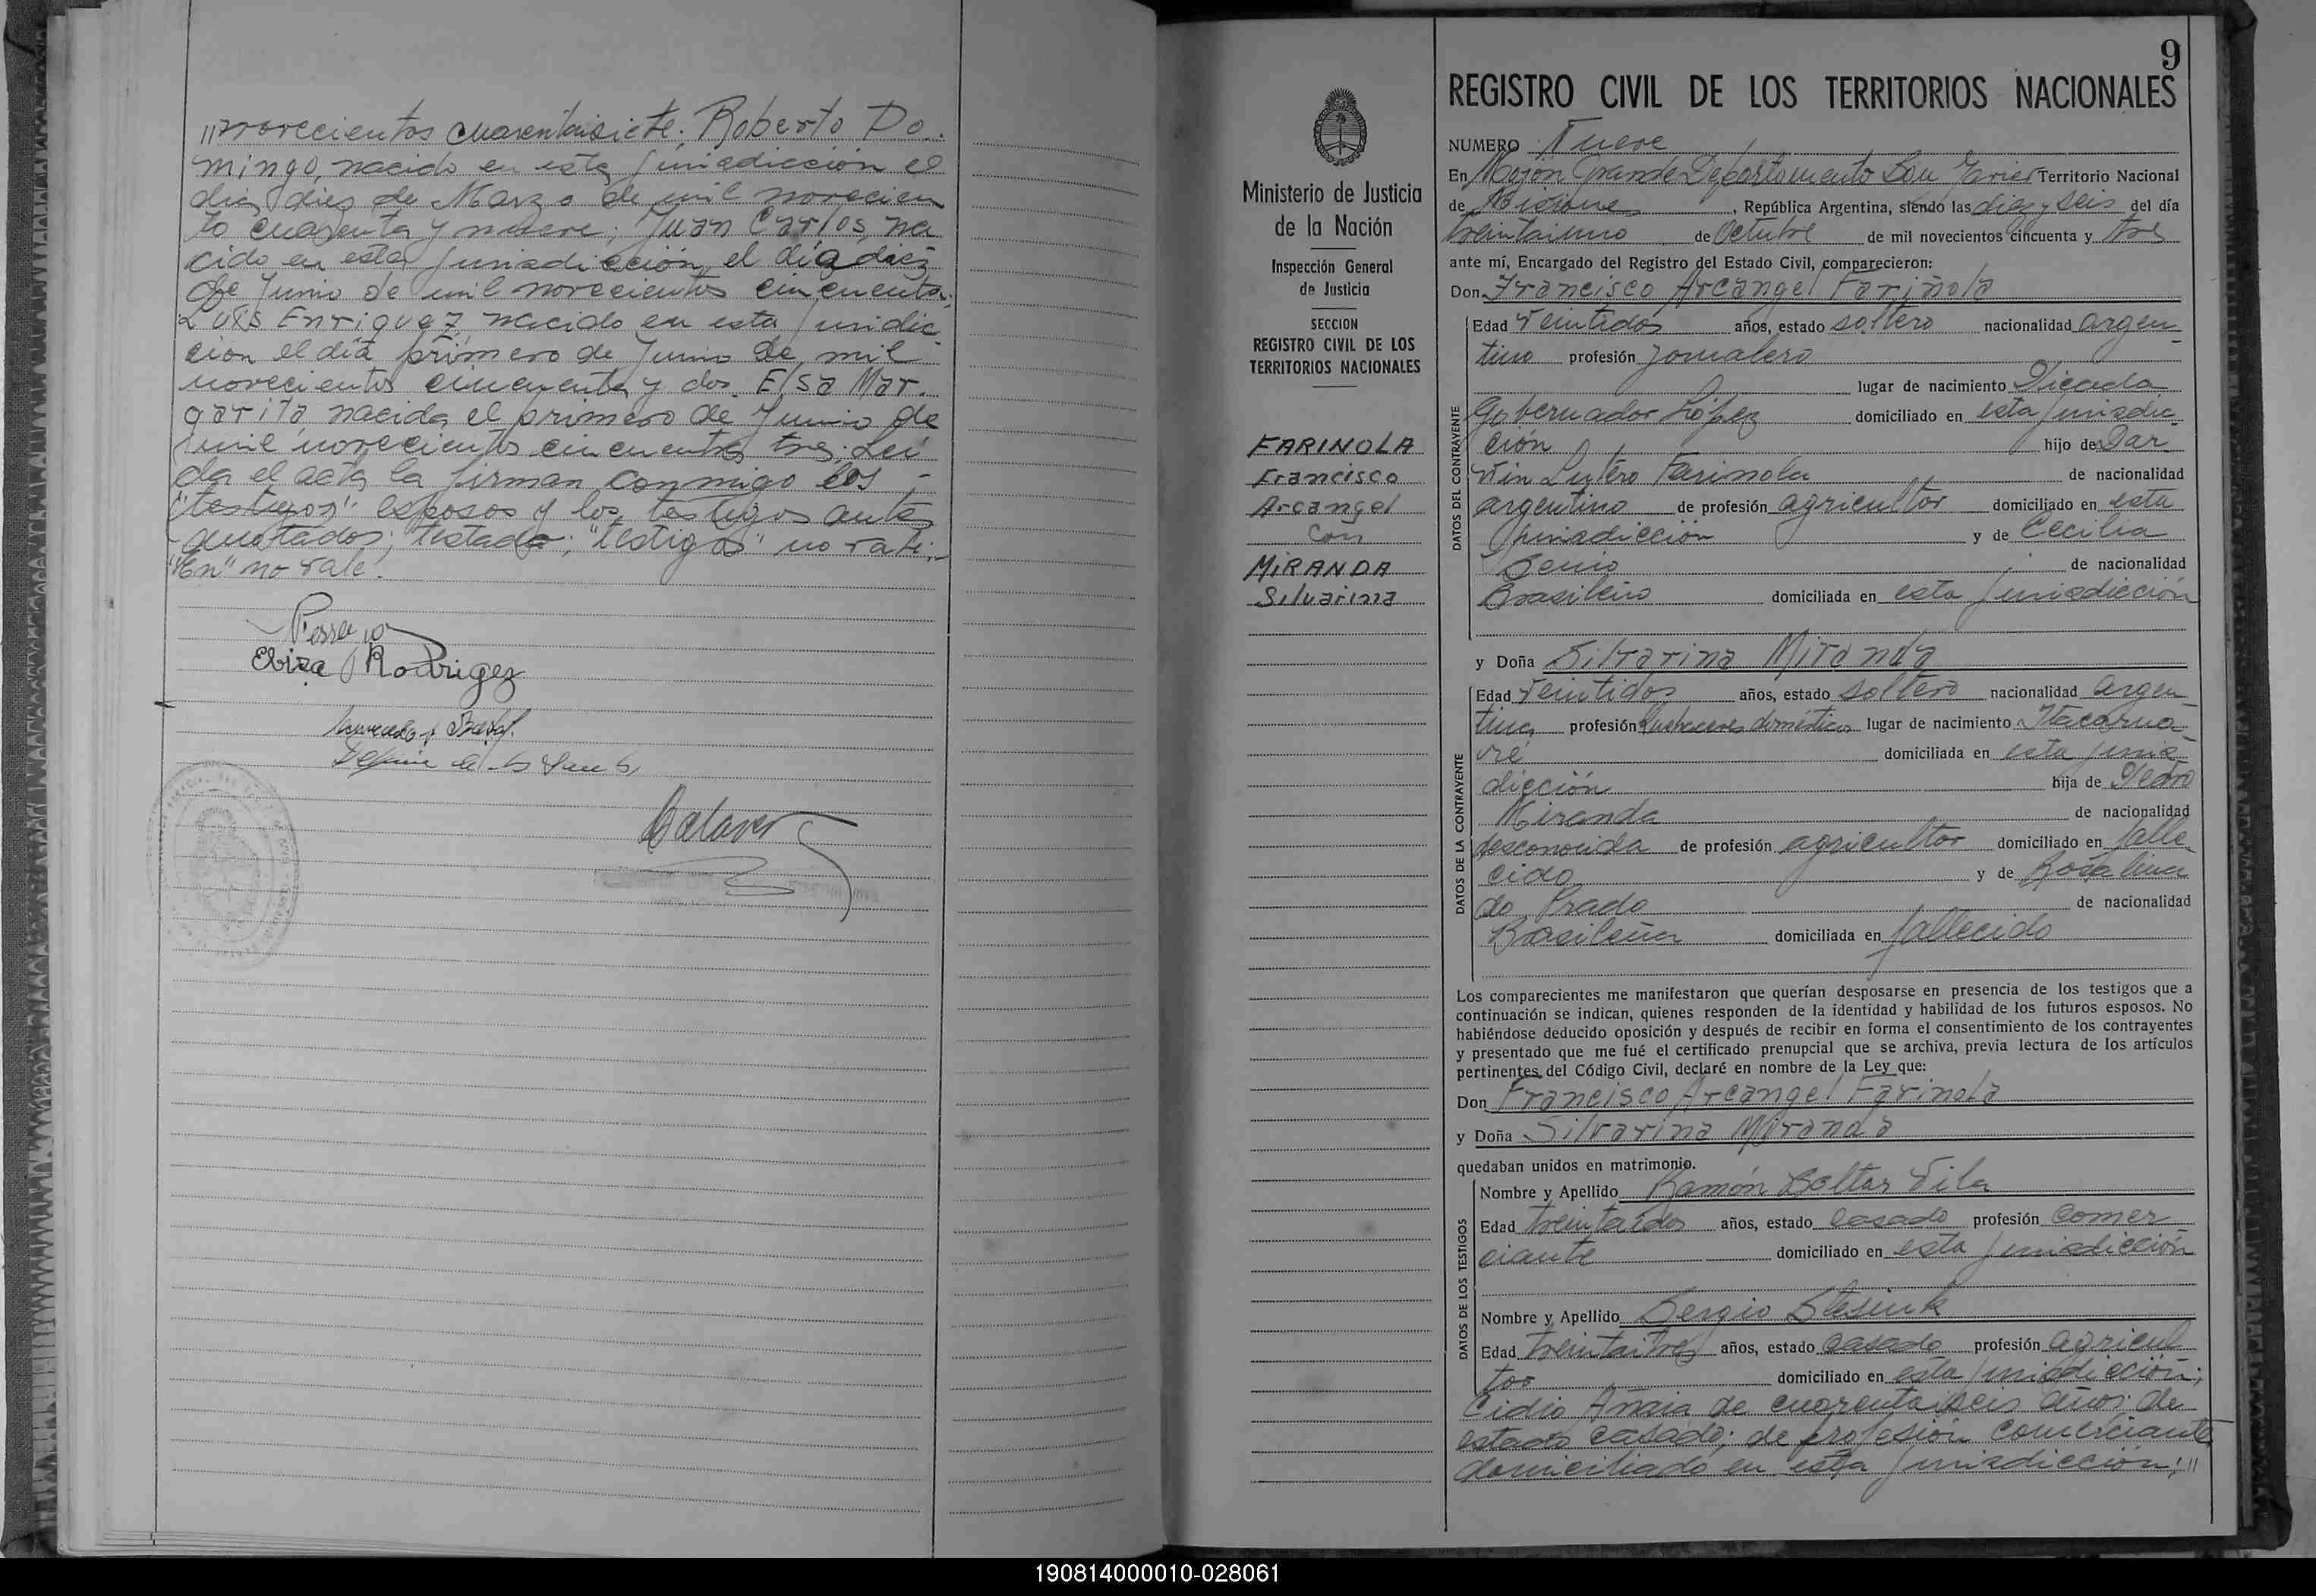 "novecientos cuarentaisiete. Roberto Do-
mingo, nacido en esta jurisdicción el
día dies de Marzo de mil novecien
to cuarenta y nueve; Juan Carlos, na
cido en esta jurisdicción el día diez
de Junio de mil novecientos cincuenta;
Luis Enriquez, nacido en esta juridic
cion el día primero de Junio de mil
novecientos cincuenta y dos. Elsa Mar-
garita nacida el primero de Junio de
mil novecientos cincuenta tres; Leí
da el acta, la firman conmigo los
"testigos" esposos y los testigos ante
"testigos" no vale;
"En" no vale.
Elvira Rodrigez
9
REGISTRO CIVIL DE LOS TERRITORIOS NACIONALES
Ministerio de Justicia
de la Nación
Inspección General
de Justicia
SECCION
REGISTRO CIVIL DE LOS
TERRITORIOS NACIONALES
FARINOLA
Francisco
Arcangel
Con
MIRANDA
Silvarina
NUMERO Nueve
En Mojón Grande Departamento San Javier Territorio Nacional
de Misiones, República Argentina, siendo las diez y seis del día
treintaiuno de Octubre de mil novecientos cincuenta y tres
ante mí, Encargado del Registro del Estado Civil, comparecieron:
Don Francisco Arcangel Fariñola
DATOS DEL CONTRAYENTE
Edad veintidos años, estado soltero nacionalidad argen
tino profesión jornalero
lugar de nacimiento Picada
Gobernador López domiciliado en esta jurisdic
ción hijo de Dar-
vin Lutero Farinola de nacionalidad
argentino de profesión agricultor domiciliado en esta
jurisdicción y de Cecilia
de nacionalidad
Brasileño domiciliada en esta jurisdicción
y Doña Silvarina Miranda
DATOS DE LA CONTRAYENTE
Edad veintidos años, estado soltero nacionalidad argen
tina profesión Quehaceres domésticos lugar de nacimiento Itacarua-
ré domiciliada en esta juris-
dicción hija de Pedro
Miranda de nacionalidad
desconocida de profesión agricultor domiciliado en falle-
cido y de Rosalina
do Prado de nacionalidad
Brasileña domiciliada en fallecido
Los comparecientes me manifestaron que querían desposarse en presencia de los testigos que a
continuación se indican, quienes responden de la identidad y habilidad de los futuros esposos. No
habiéndose deducido oposición y después de recibir en forma el consentimiento de los contrayentes
y presentado que me fué el certificado prenupcial que se archiva, previa lectura de los artículos
pertinentes del Código Civil, declaré en nombre de la Ley que:
Don Francisco Arcangel Farinola
y Doña Silvarina Miranda
quedaban unidos en matrimonio.
DATOS DE LOS TESTIGOS
Nombre y Apellido Ramón Boltar Vila
Edad treintaidos años, estado casado profesión Comer
ciante domiciliado en esta jurisdicción
Nombre y Apellido Sergio
Edad treintaitres años, estado casado profesión agricul
tor domiciliado en esta jurisdicción;
Cidio de cuarenta seis años; de
estado casado; de profesión comerciante
domiciliado en esta jurisdicción; "
190814000010-028061